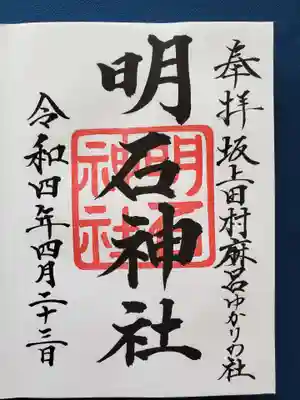 奉拝 坂上田村麻呂ゆかりの社
明石神社
明石神社
令和四年四月二十三日